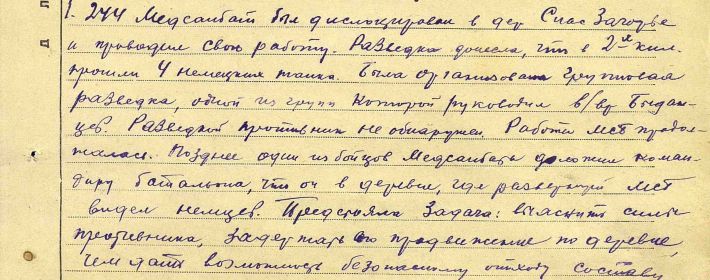 1. 244 Медсанбат был дислоцирован в дер Спас
и проводил свою работу. Разведка донесла, что в 2-х кил.
прошли 4 немецких танка. Была организована групповая
разведка, одной из групп которой руководил в/вр
цев. Разведкой противник не обнаружен. Работа МСБ продол-
жалась. Позднее один из бойцов Медсанбата доложил коман-
диру батальона, что он в деревне, где развернут МСБ
видел немцев. Предстояла задача: выяснить силы
противника, задержать его продвижение по деревне,
чем дать возможность безопасному отходу составу